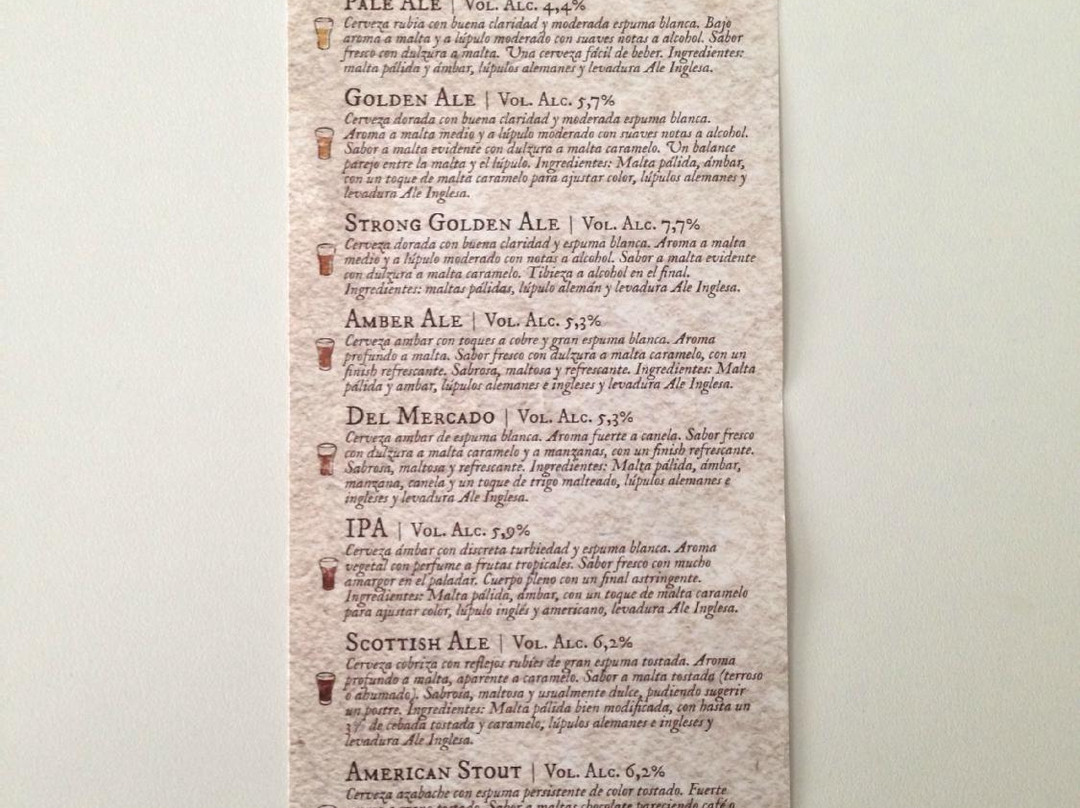 Pale Ale | Vol. Alc. 4,4%
Cerveza rubia con buena claridad y moderada espuma blanca. Bajo
aroma a malta y a lúpulo moderado con suaves notas a alcohol. Sabor
fresco con dulzura a malta. Una cerveza fácil de beber. Ingredientes:
malta pálida y ámbar, lúpulos alemanes y levadura Ale Inglesa.
Golden Ale | Vol. Alc. 5,7%
Cerveza dorada con buena claridad y moderada espuma blanca.
Aroma a malta medio y a lúpulo moderado con suaves notas a alcohol.
Sabor a malta evidente con dulzura a malta caramelo. Un balance
parejo entre la malta y el lúpulo. Ingredientes: Malta pálida, ámbar,
con un toque de malta caramelo para ajustar color, lúpulos alemanes y
levadura Ale Inglesa.
Strong Golden Ale | Vol. Alc. 7,7%
Cerveza dorada con buena claridad y espuma blanca. Aroma a malta
medio y a lúpulo moderado con notas a alcohol. Sabor a malta evidente
con dulzura a malta caramelo. Tibieza a alcohol en el final.
Ingredientes: maltas pálidas, lúpulo alemán y levadura Ale Inglesa.
Amber Ale | Vol. Alc. 5,3%
Cerveza ambar con toques a cobre y gran espuma blanca. Aroma
profundo a malta. Sabor fresco con dulzura a malta caramelo, con un
finish refrescante. Sabrosa, maltosa y refrescante. Ingredientes: Malta
pálida y ambar, lúpulos alemanes e ingleses y levadura Ale Inglesa.
Del Mercado | Vol. Alc. 5,3%
Cerveza ambar de espuma blanca. Aroma fuerte a canela. Sabor fresco
con dulzura a malta caramelo y a manzanas, con un finish refrescante.
Sabrosa, maltosa y refrescante. Ingredientes: Malta pálida, ámbar,
manzana, canela y un toque de trigo malteado, lúpulos alemanes e
ingleses y levadura Ale Inglesa.
IPA | Vol. Alc. 5,9%
Cerveza ámbar con discreta turbiedad y espuma blanca. Aroma
vegetal con perfume a frutas tropicales. Sabor fresco con mucho
amargor en el paladar. Cuerpo pleno con un final astringente.
Ingredientes: Malta pálida, ámbar, con un toque de malta caramelo
para ajustar color, lúpulo inglés y americano, levadura Ale Inglesa.
Scottish Ale | Vol. Alc. 6,2%
Cerveza cobriza con reflejos rubíes de gran espuma tostada. Aroma
profundo a malta, aparente a caramelo. Sabor a malta tostada (terroso
o ahumado). Sabrosa, maltosa y usualmente dulce, pudiendo sugerir
un postre. Ingredientes: Malta pálida bien modificada, con hasta un
3% de cebada tostada y caramelo, lúpulos alemanes e ingleses y
levadura Ale Inglesa.
American Stout | Vol. Alc. 6,2%
Cerveza azabache con espuma persistente de color tostado. Fuerte
tostado. Sabor a maltas chocolate pareciendo café o